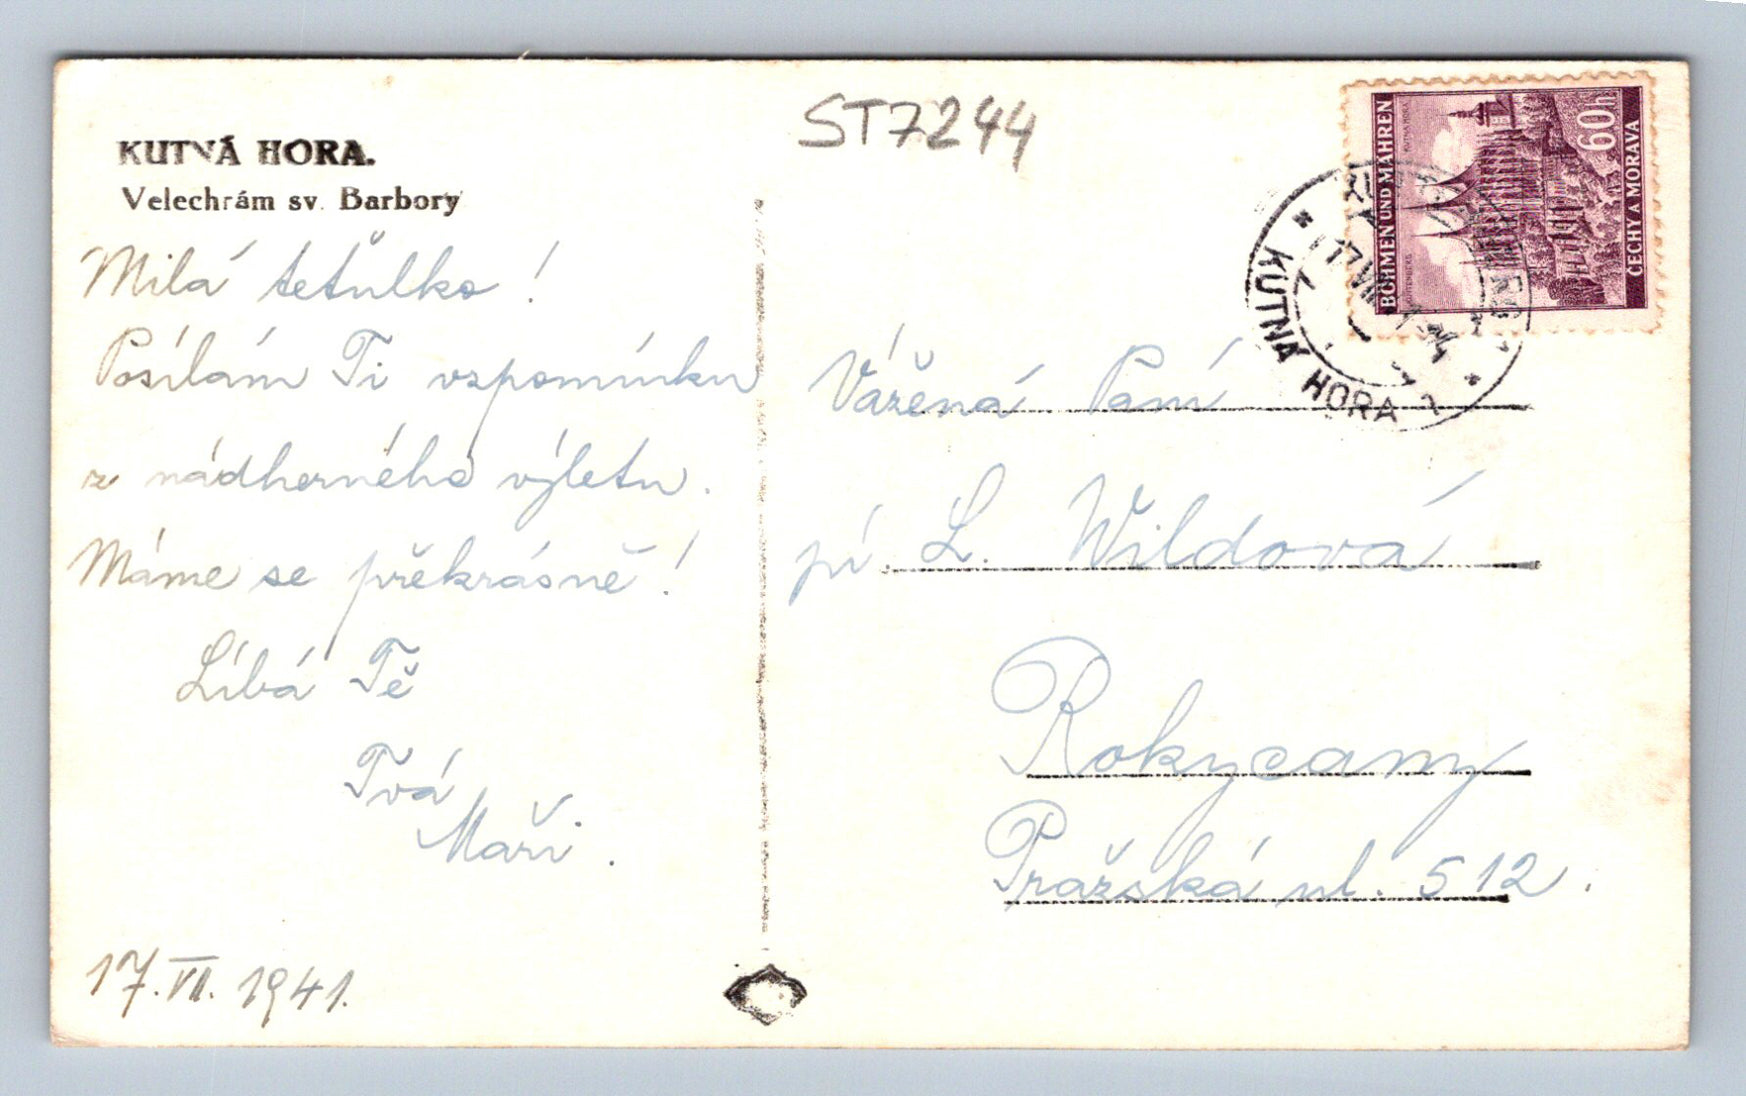 KUTNÁ HORA.
Velechrám sv. Barbory
ST7244
Milá tetulko!
Posílám Ti vzpomínku
z nádherného výletu.
Máme se překrásně!
Líbá Tě
Tvá
Maři.
17. VII. 1941.
BÖHMEN UND MÄHREN
60h
ČECHY A MORAVA
KUTNÁ HORA 1
17 VII
Vážená Paní
pí. L. Wildová
Rokycany
Pražská ul. 512.